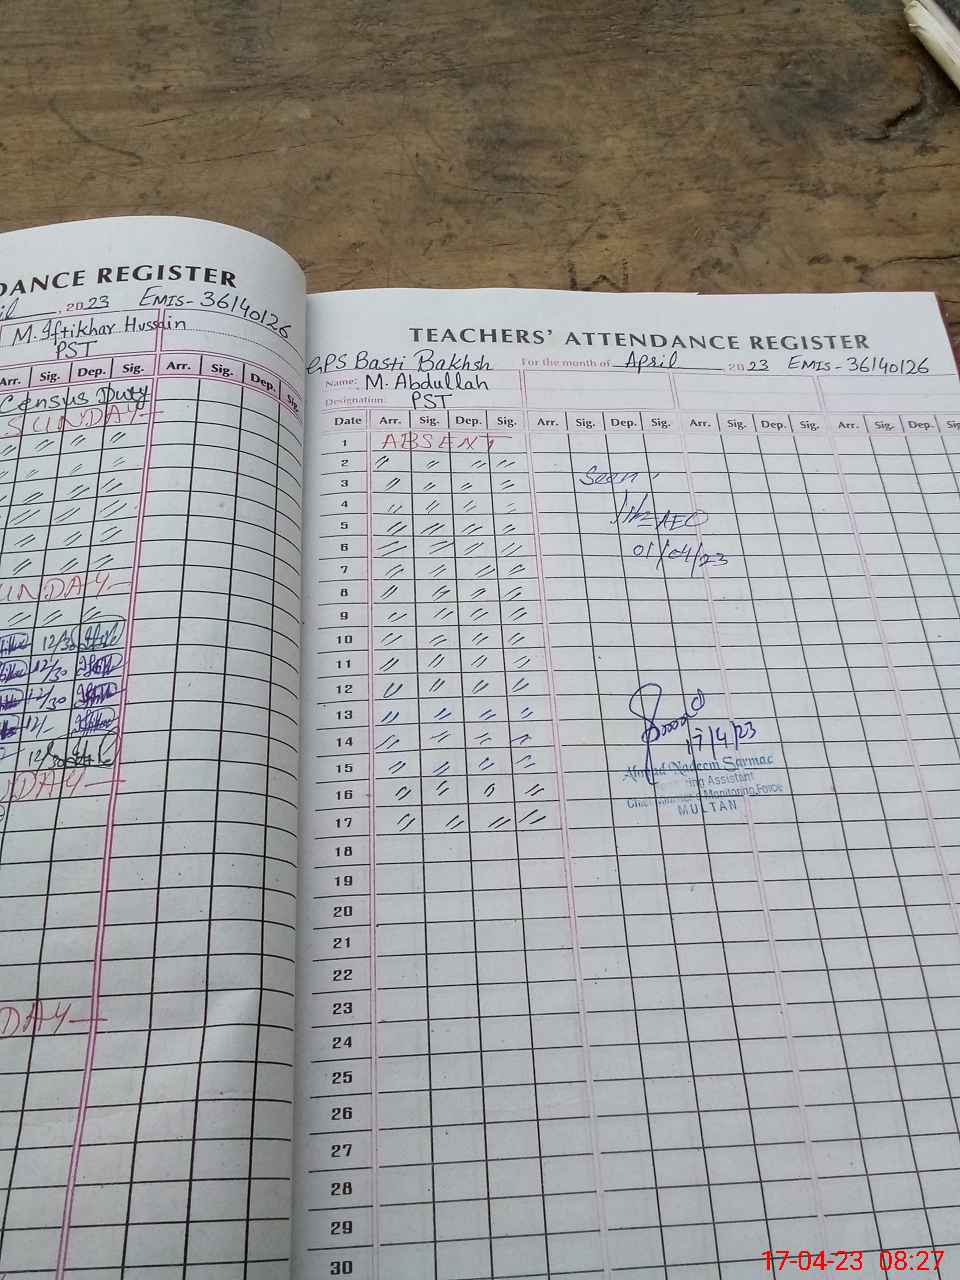 DANCE REGISTER
, 2023 EMIS-36140126
M. Iftikhar Hussain
PST
Arr. Sig. Dep. Sig. Arr. Sig. Dep. Sig.
Census Duty
SUNDAY
UNDAY
12/30
12/30
12/30
12/
12/30
DAY
DAY
TEACHERS' ATTENDANCE REGISTER
GPS Basti Bakhsh For the month of April 2023 EMIS-36140126
Name: M. Abdullah
Designation: PST
Date Arr. Sig. Dep. Sig. Arr. Sig. Dep. Sig. Arr. Sig. Dep. Sig. Arr. Sig. Dep. Sig
1 ABSENT
2 〃 〃 〃 〃
3 〃 〃 〃 〃 Seen
4 〃 〃 〃 〃
5 〃 〃 〃 〃 AEO
6 〃 〃 〃 〃
7 〃 〃 〃 〃 01/04/23
8 〃 〃 〃 〃
9 〃 〃 〃 〃
10 〃 〃 〃 〃
11 〃 〃 〃 〃
12 〃 〃 〃 〃
13 〃 〃 〃 〃
14 〃 〃 〃 〃 17/4/23
15 〃 〃 〃 〃 Ahmad Nadeem Sarmac
ing Assistant
16 〃 〃 〃 〃 Monitoring Force
MULTAN
17 〃 〃 〃 〃
18
19
20
21
22
23
24
25
26
27
28
29
30
17-04-23 08:27